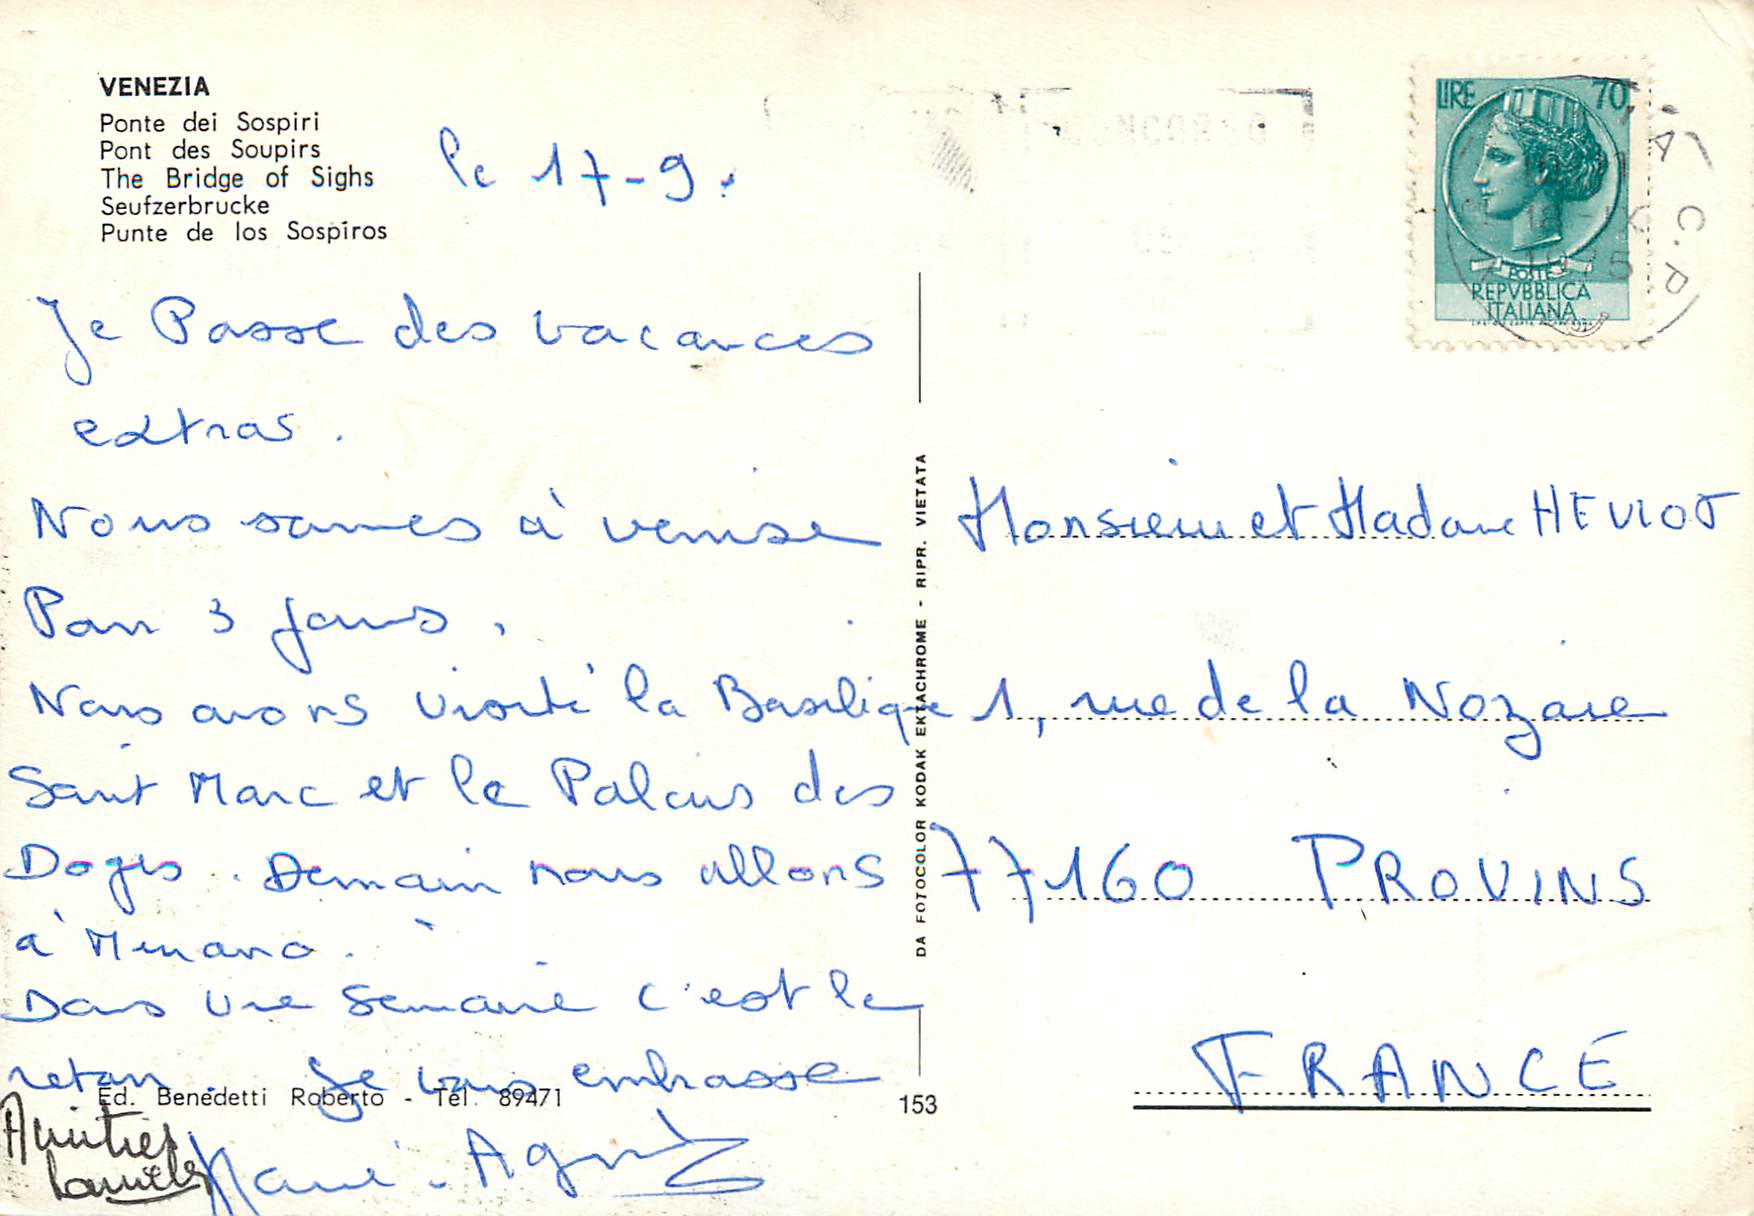 VENEZIA
Ponte dei Sospiri
Pont des Soupirs
The Bridge of Sighs
Seufzerbrucke
Punte de los Sospiros
le 17-9.
Je Passe des vacances
extras.
Nous sommes à venise
Pour 3 jours.
Nous avons visité la Basilique
Saint Marc et le Palais des
Doges. Demain nous allons
à Murano.
Dans une semaine c'est le
retour. Je vous embrasse
Ed. Benedetti Roberto - Tel. 89471
Amitiés
Marie-Agnès
153
DA FOTOCOLOR KODAK EKTACHROME - RIPR. VIETATA
LIRE 70
POSTE
REPVBBLICA
ITALIANA
18-IX
1975
A C.P.
Monsieur et Madame HEVIOT
1, rue de la Nozaie
77160 PROVINS
FRANCE